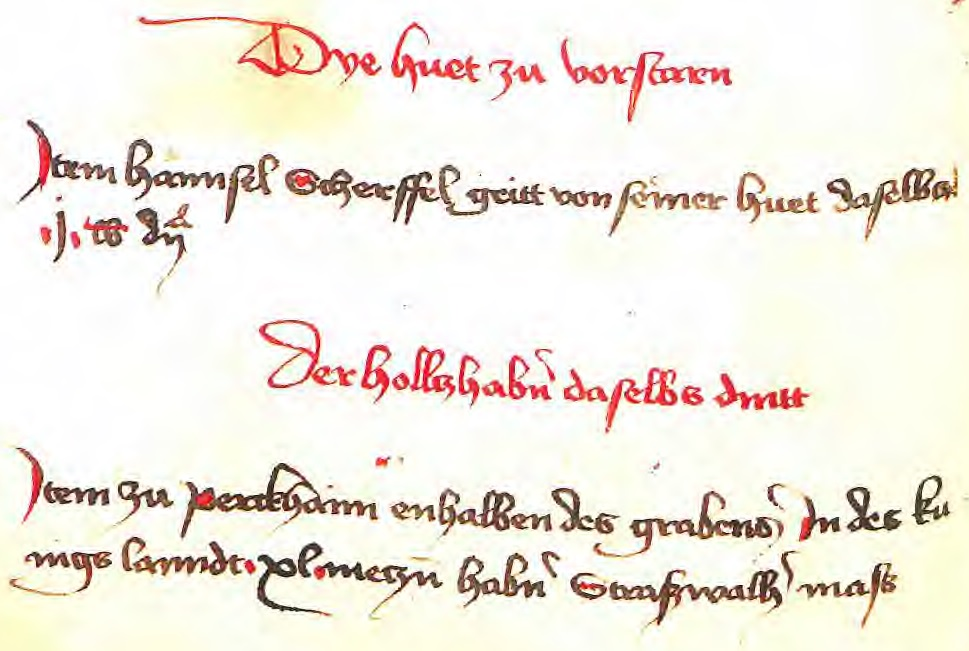 Dye huet zu vorstaren
Item Hannsel Scherffel geitt von seiner huet daselbs
.j. lb dn
Der holltzhabn daselbs dinitt
Item zu perckhaim enhalben des grabens In des ku
nigs lanndt .xl. metzn habn Straßwalh mass